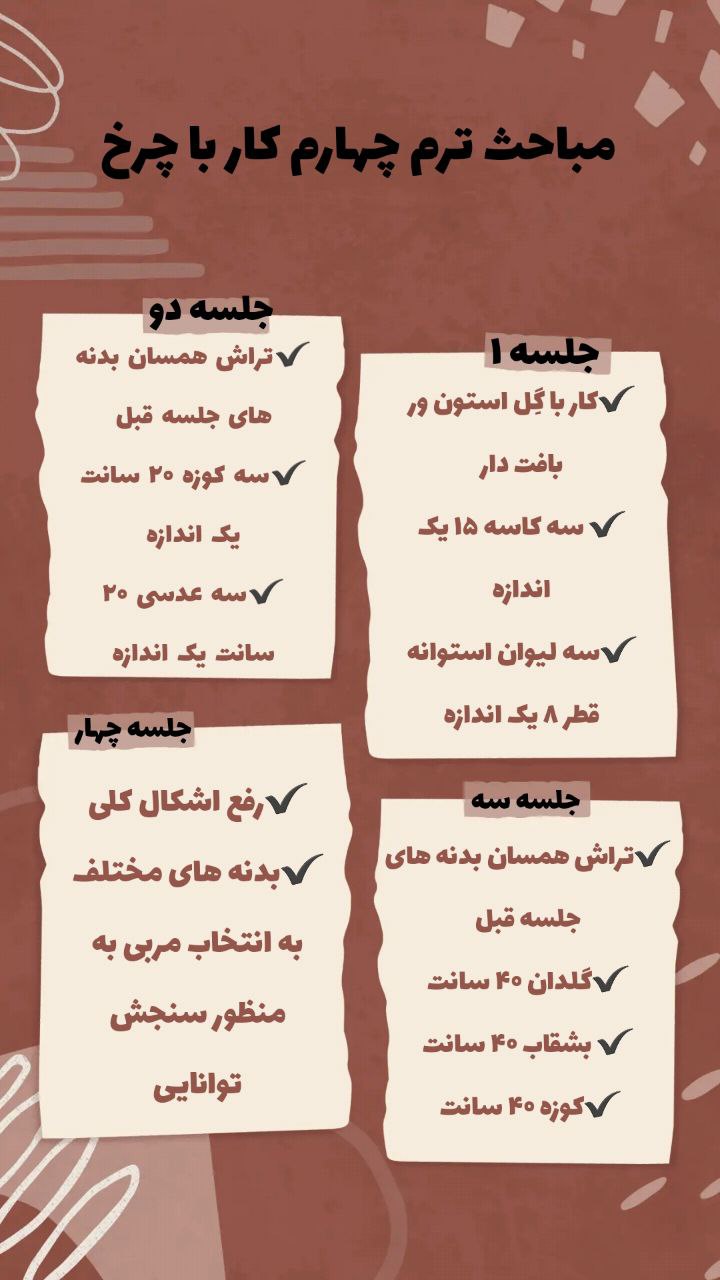 مباحث ترم چهارم کار با چرخ
جلسه ۱
✔کار با گِل استون ور
بافت دار
✔ سه کاسه ۱۵ یک
اندازه
✔سه لیوان استوانه
قطر ۸ یک اندازه
جلسه دو
✔تراش همسان بدنه
های جلسه قبل
✔سه کوزه ۲۰ سانت
یک اندازه
✔سه عدسی ۲۰
سانت یک اندازه
جلسه سه
✔تراش همسان بدنه های
جلسه قبل
✔گلدان ۴۰ سانت
✔ بشقاب ۴۰ سانت
✔کوزه ۴۰ سانت
جلسه چهار
✔رفع اشکال کلی
✔بدنه های مختلف
به انتخاب مربی به
منظور سنجش
توانایی